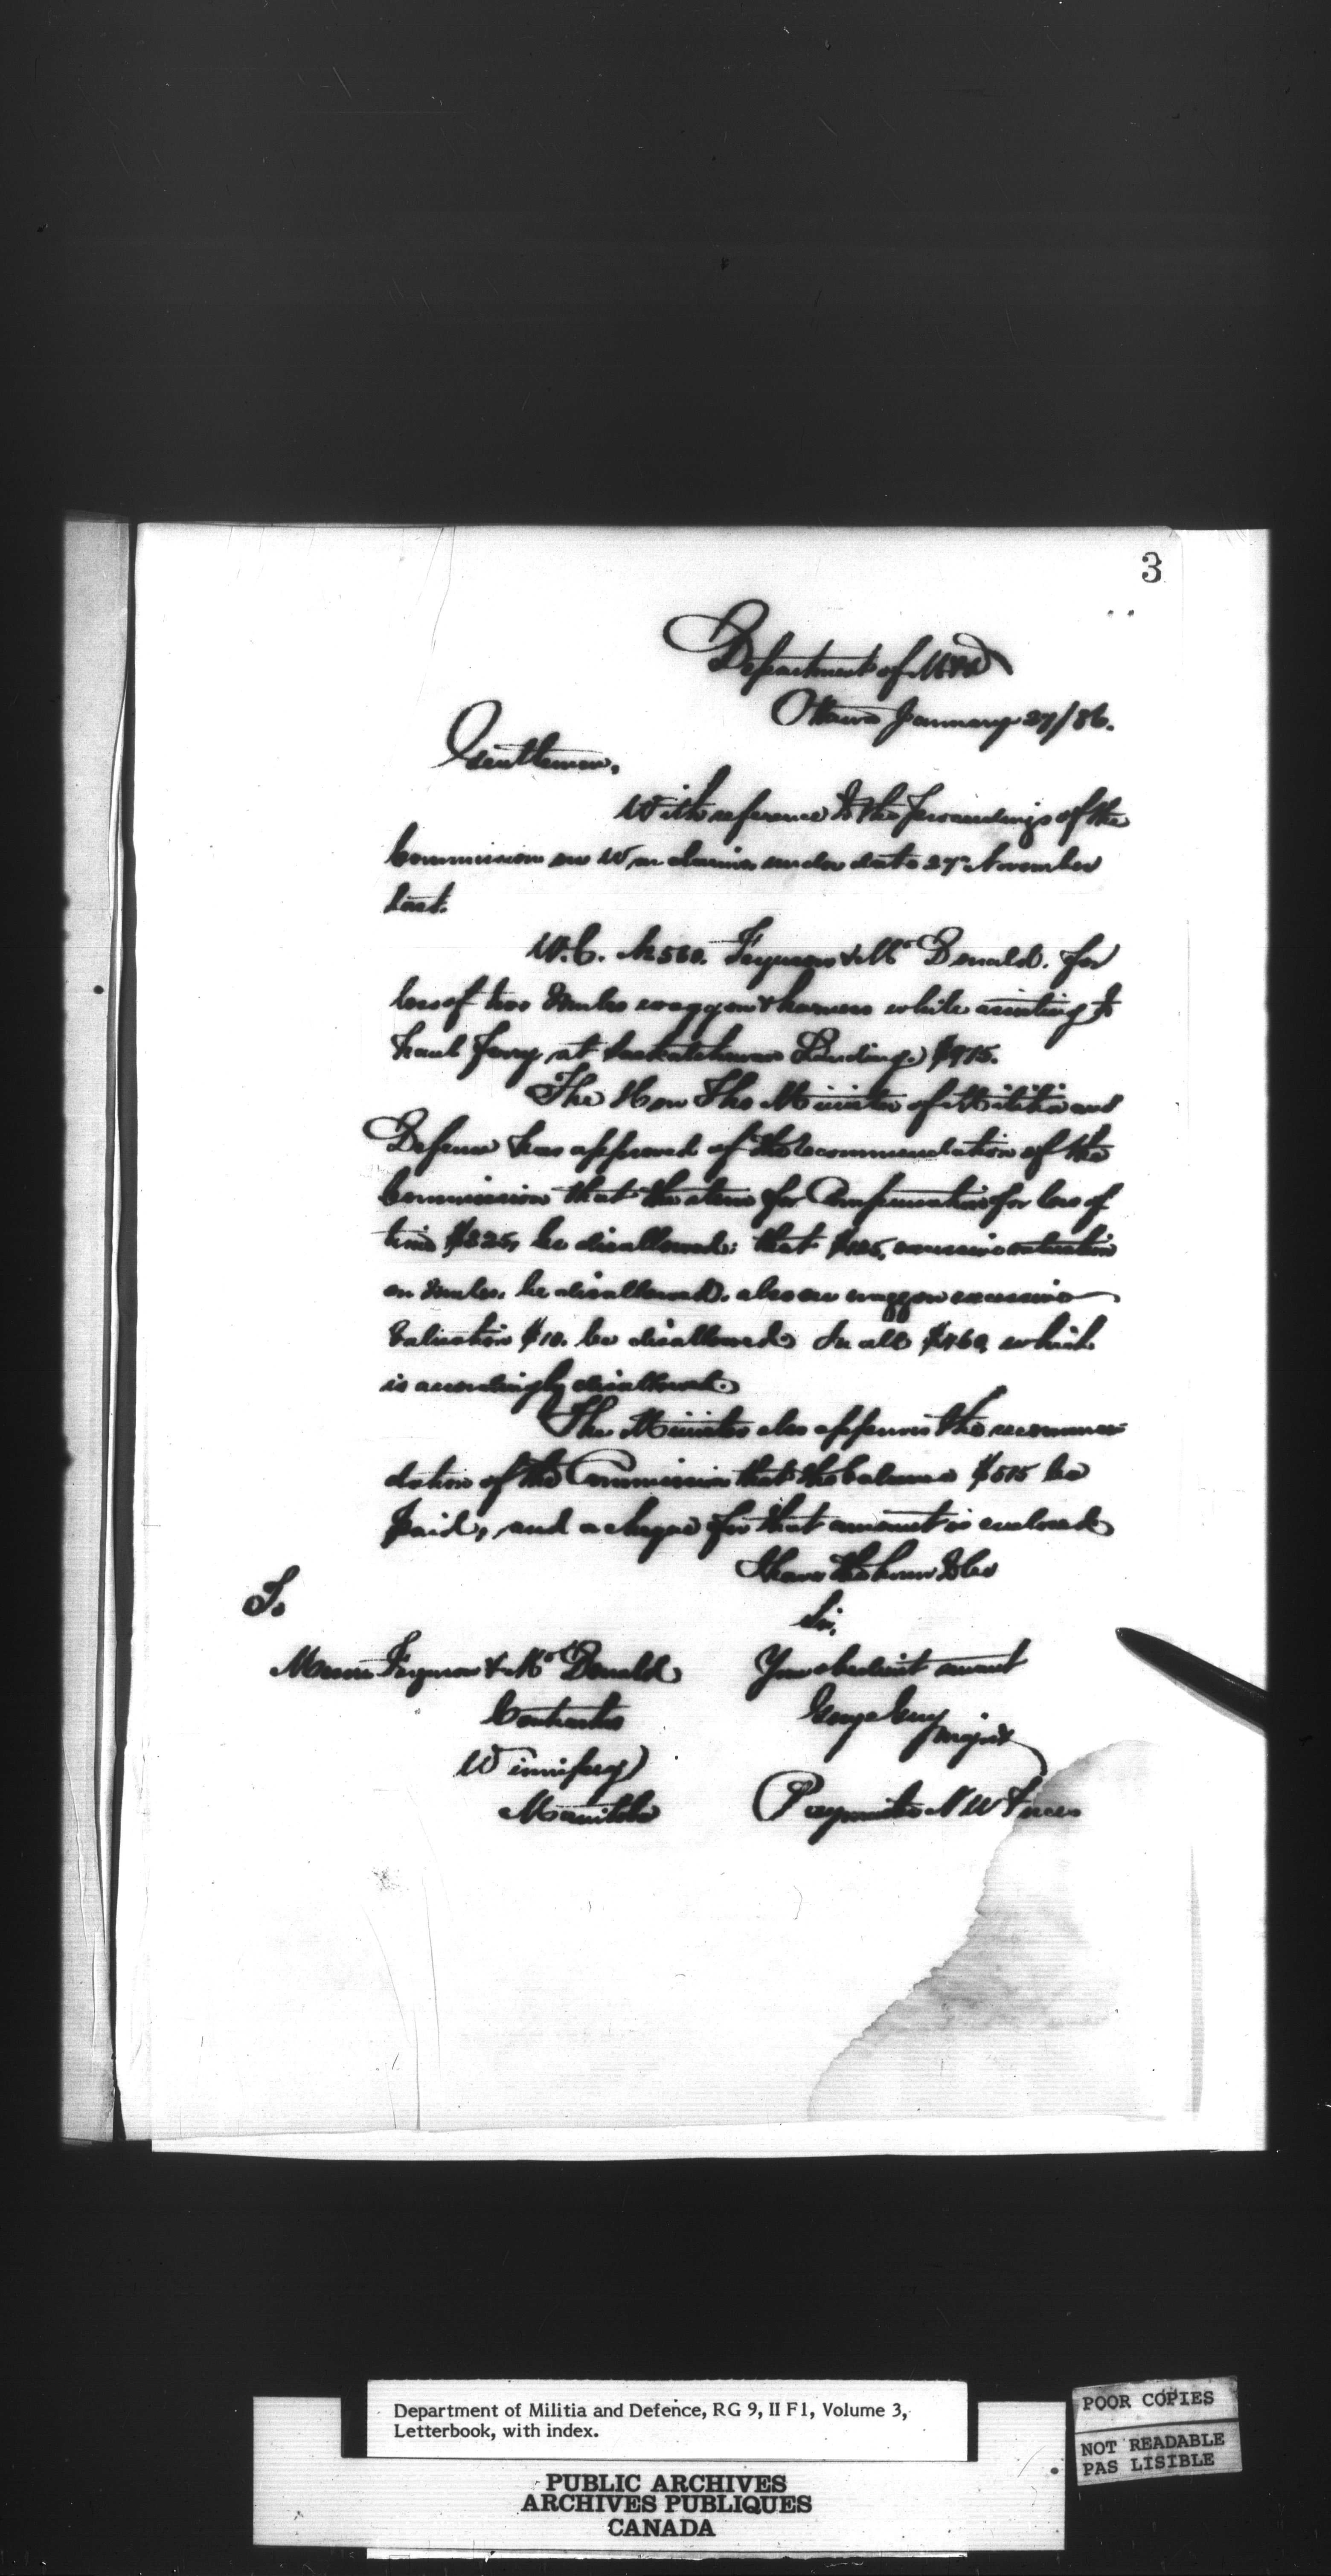 3
Department of M & D
Ottawa January 27/86.
Gentlemen,
With reference to the proceedings of the
Commission on War claims under date 27th November
last.
W.C. No 560. Ferguson & McDonald. for
loss of two mules waggon & harness while assisting to
haul ferry at Saskatchewan Landing. $975.
The Hon The Minister of Militia and
Defence has approved of the recommendation of the
Commission that the item for Compensation for loss of
time $325, be disallowed: that $125, excessive valuation
on mules. be disallowed. also on waggon excessive
Valuation $10. be disallowed. In all $460, which
is accordingly disallowed.
The Minister also approves the recommen-
dation of the Commission that the balance $515 be
paid, and a cheque for that amount is enclosed
I have the honor to be
Sir,
To
Messrs Ferguson & McDonald
Contractors
Winnipeg
Manitoba
Your obedient servant
George Guy Major
Paymaster N W Forces
Department of Militia and Defence, RG 9, II F1, Volume 3,
Letterbook, with index.
PUBLIC ARCHIVES
ARCHIVES PUBLIQUES
CANADA
POOR COPIES
NOT READABLE
PAS LISIBLE